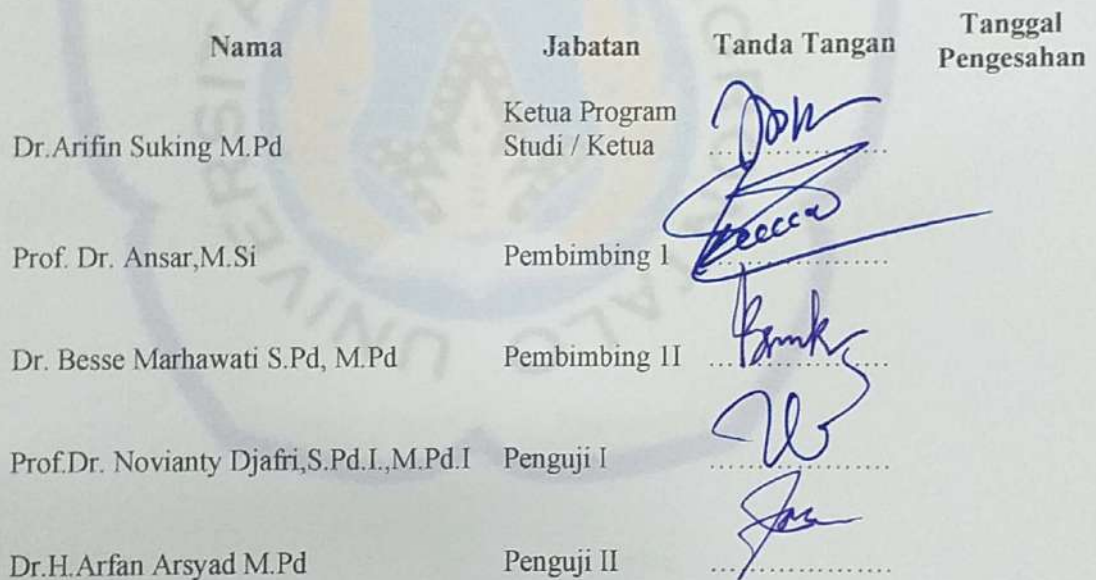 Nama Jabatan Tanda Tangan Tanggal Pengesahan
Dr.Arifin Suking M.Pd Ketua Program Studi / Ketua ..................
Prof. Dr. Ansar,M.Si Pembimbing 1 ..................
Dr. Besse Marhawati S.Pd, M.Pd Pembimbing 1I ..................
Prof.Dr. Novianty Djafri,S.Pd.I.,M.Pd.I Penguji I ..................
Dr.H.Arfan Arsyad M.Pd Penguji II ..................